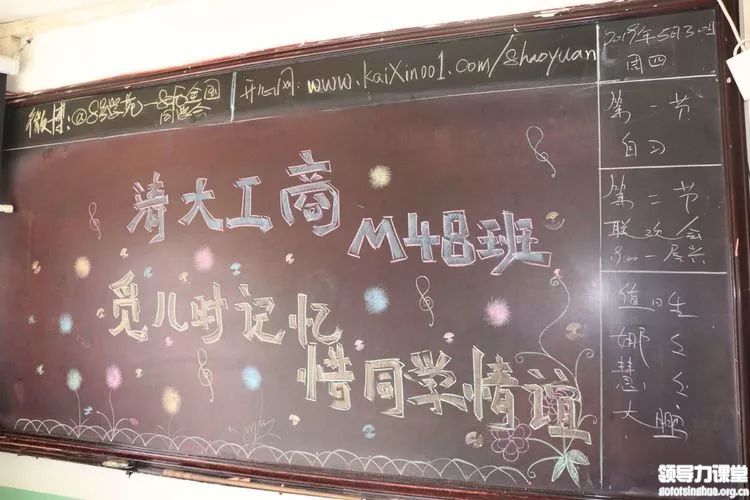 微博:@8号学苑—8号全国同学会
开心网:www.kaixin001.com/8haoyuan
清大工商
M48班
觅儿时记忆
惜同学情谊
2019年5月30日
周四
第一节
自习
第二节
联欢会
值日生
娜
慧
大脸
领导力课堂
gototsinghua.org.cn